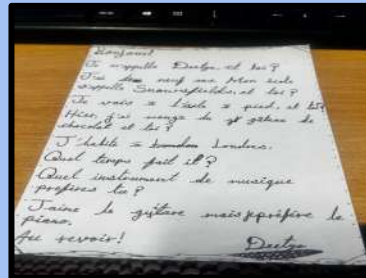 Bonjour!
Je m'appelle Deetya et toi?
J'ai neuf ans Mon école
s'appelle Snowsfields, et toi?
Je vais à l'école à pied, et toi?
Hier, j'ai mangé du gâteau de
chocolat et toi?
J'habite à Londres.
Quel temps fait il?
Quel instrument de musique
préfères tu?
J'aime le gùitare mais je préfère le
piano.
Au revoir!
Deetya